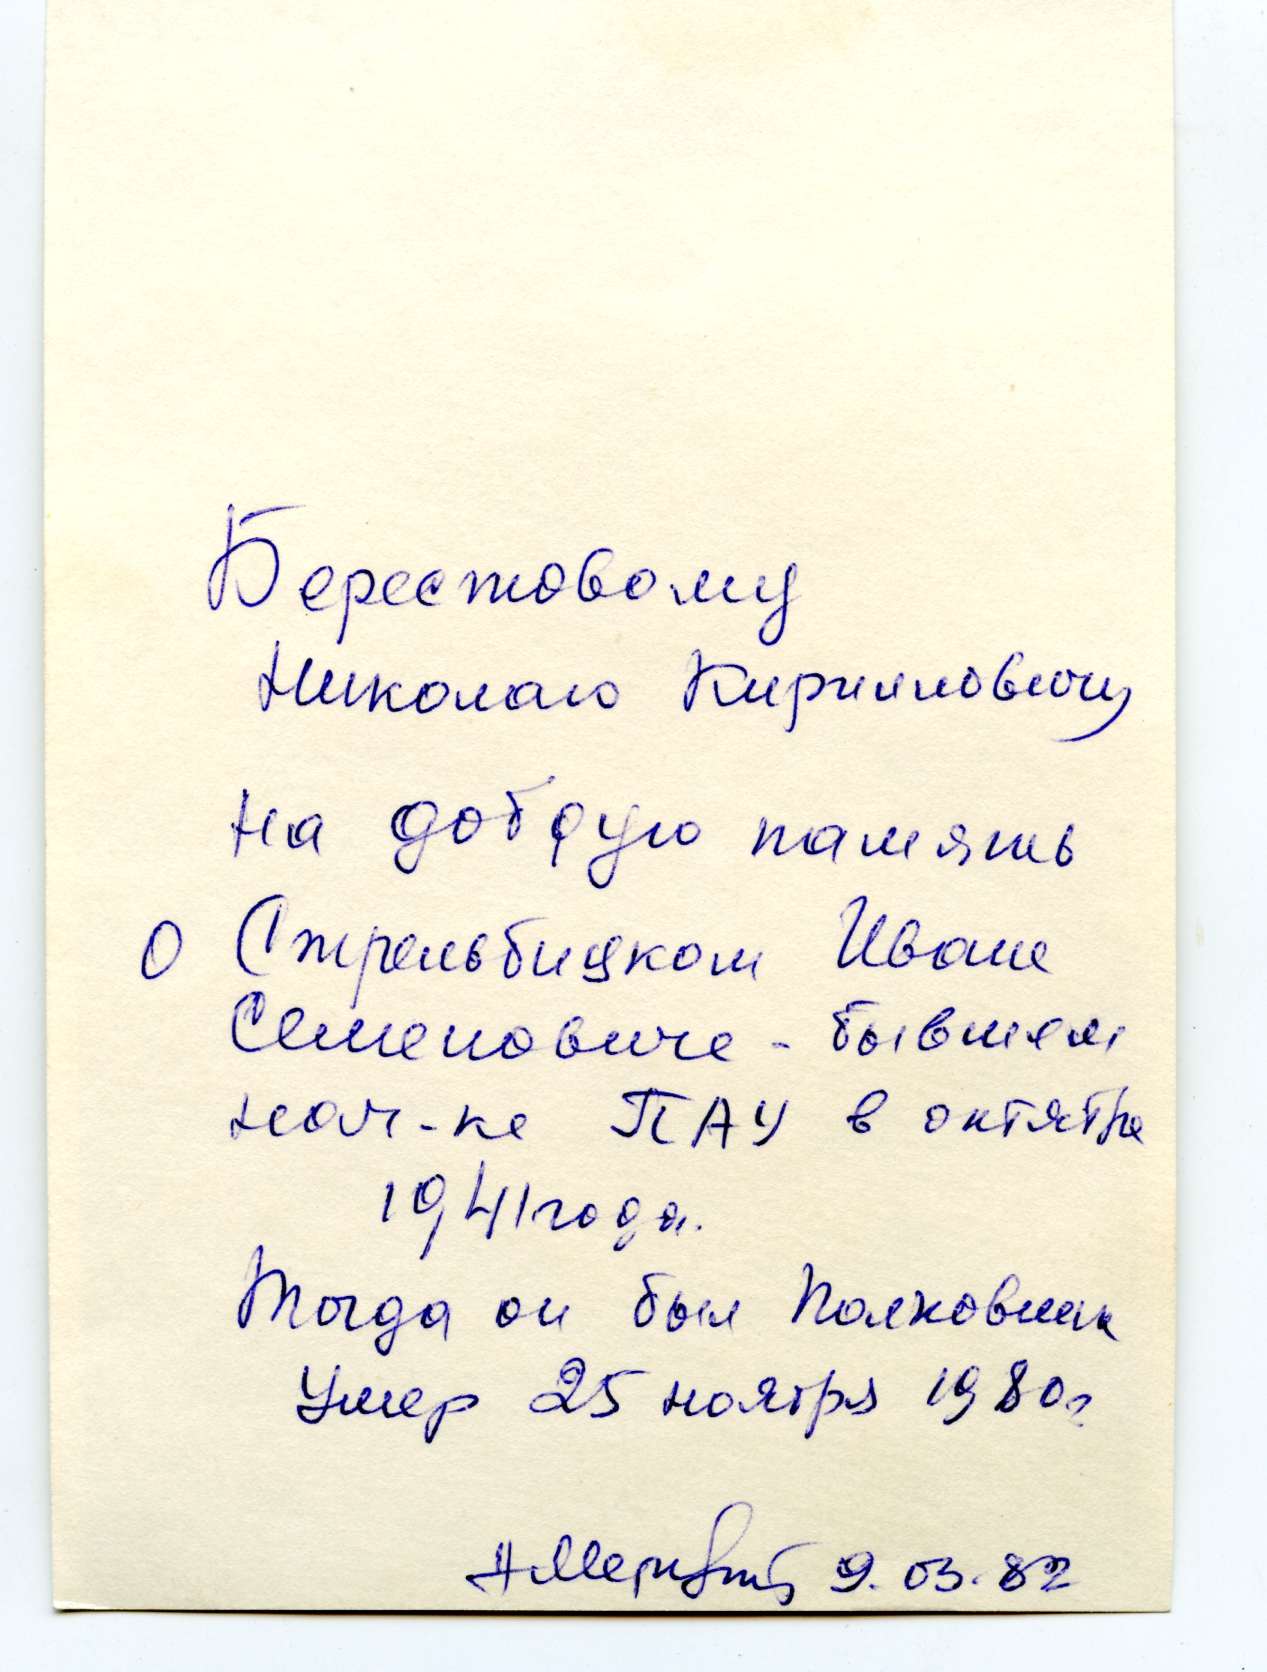 Берестовому
Николаю Кирилловичу
на добрую память
о Стрельбицком Иване
Семеновиче - бывшем
нач-ке ПАУ в октябре
1941 года.
Тогда он был Полковник
Умер 25 ноября 1980г
9.03.82